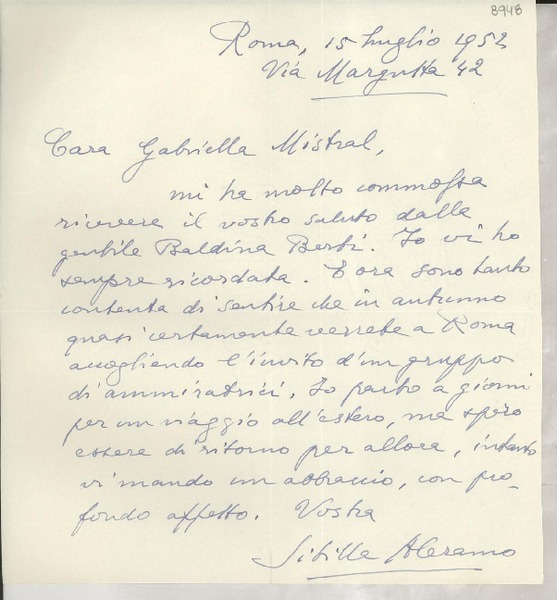 8948
Roma, 15 luglio 1952
Via Margutta 42
Cara Gabriella Mistral,
mi ha molto commossa
ricevere il vostro saluto dalla
gentile Baldina Berti. Io vi ho
sempre ricordata. E ora sono tanto
contenta di sentire che in autunno
quasi certamente verrete a Roma
accogliendo l'invito d'un gruppo
di ammiratrici. Io parto a giorni
per un viaggio all'estero, ma spero
essere di ritorno per allora, intanto
vi mando un abbraccio, con pro-
fondo affetto. Vostra
Sibilla Aleramo